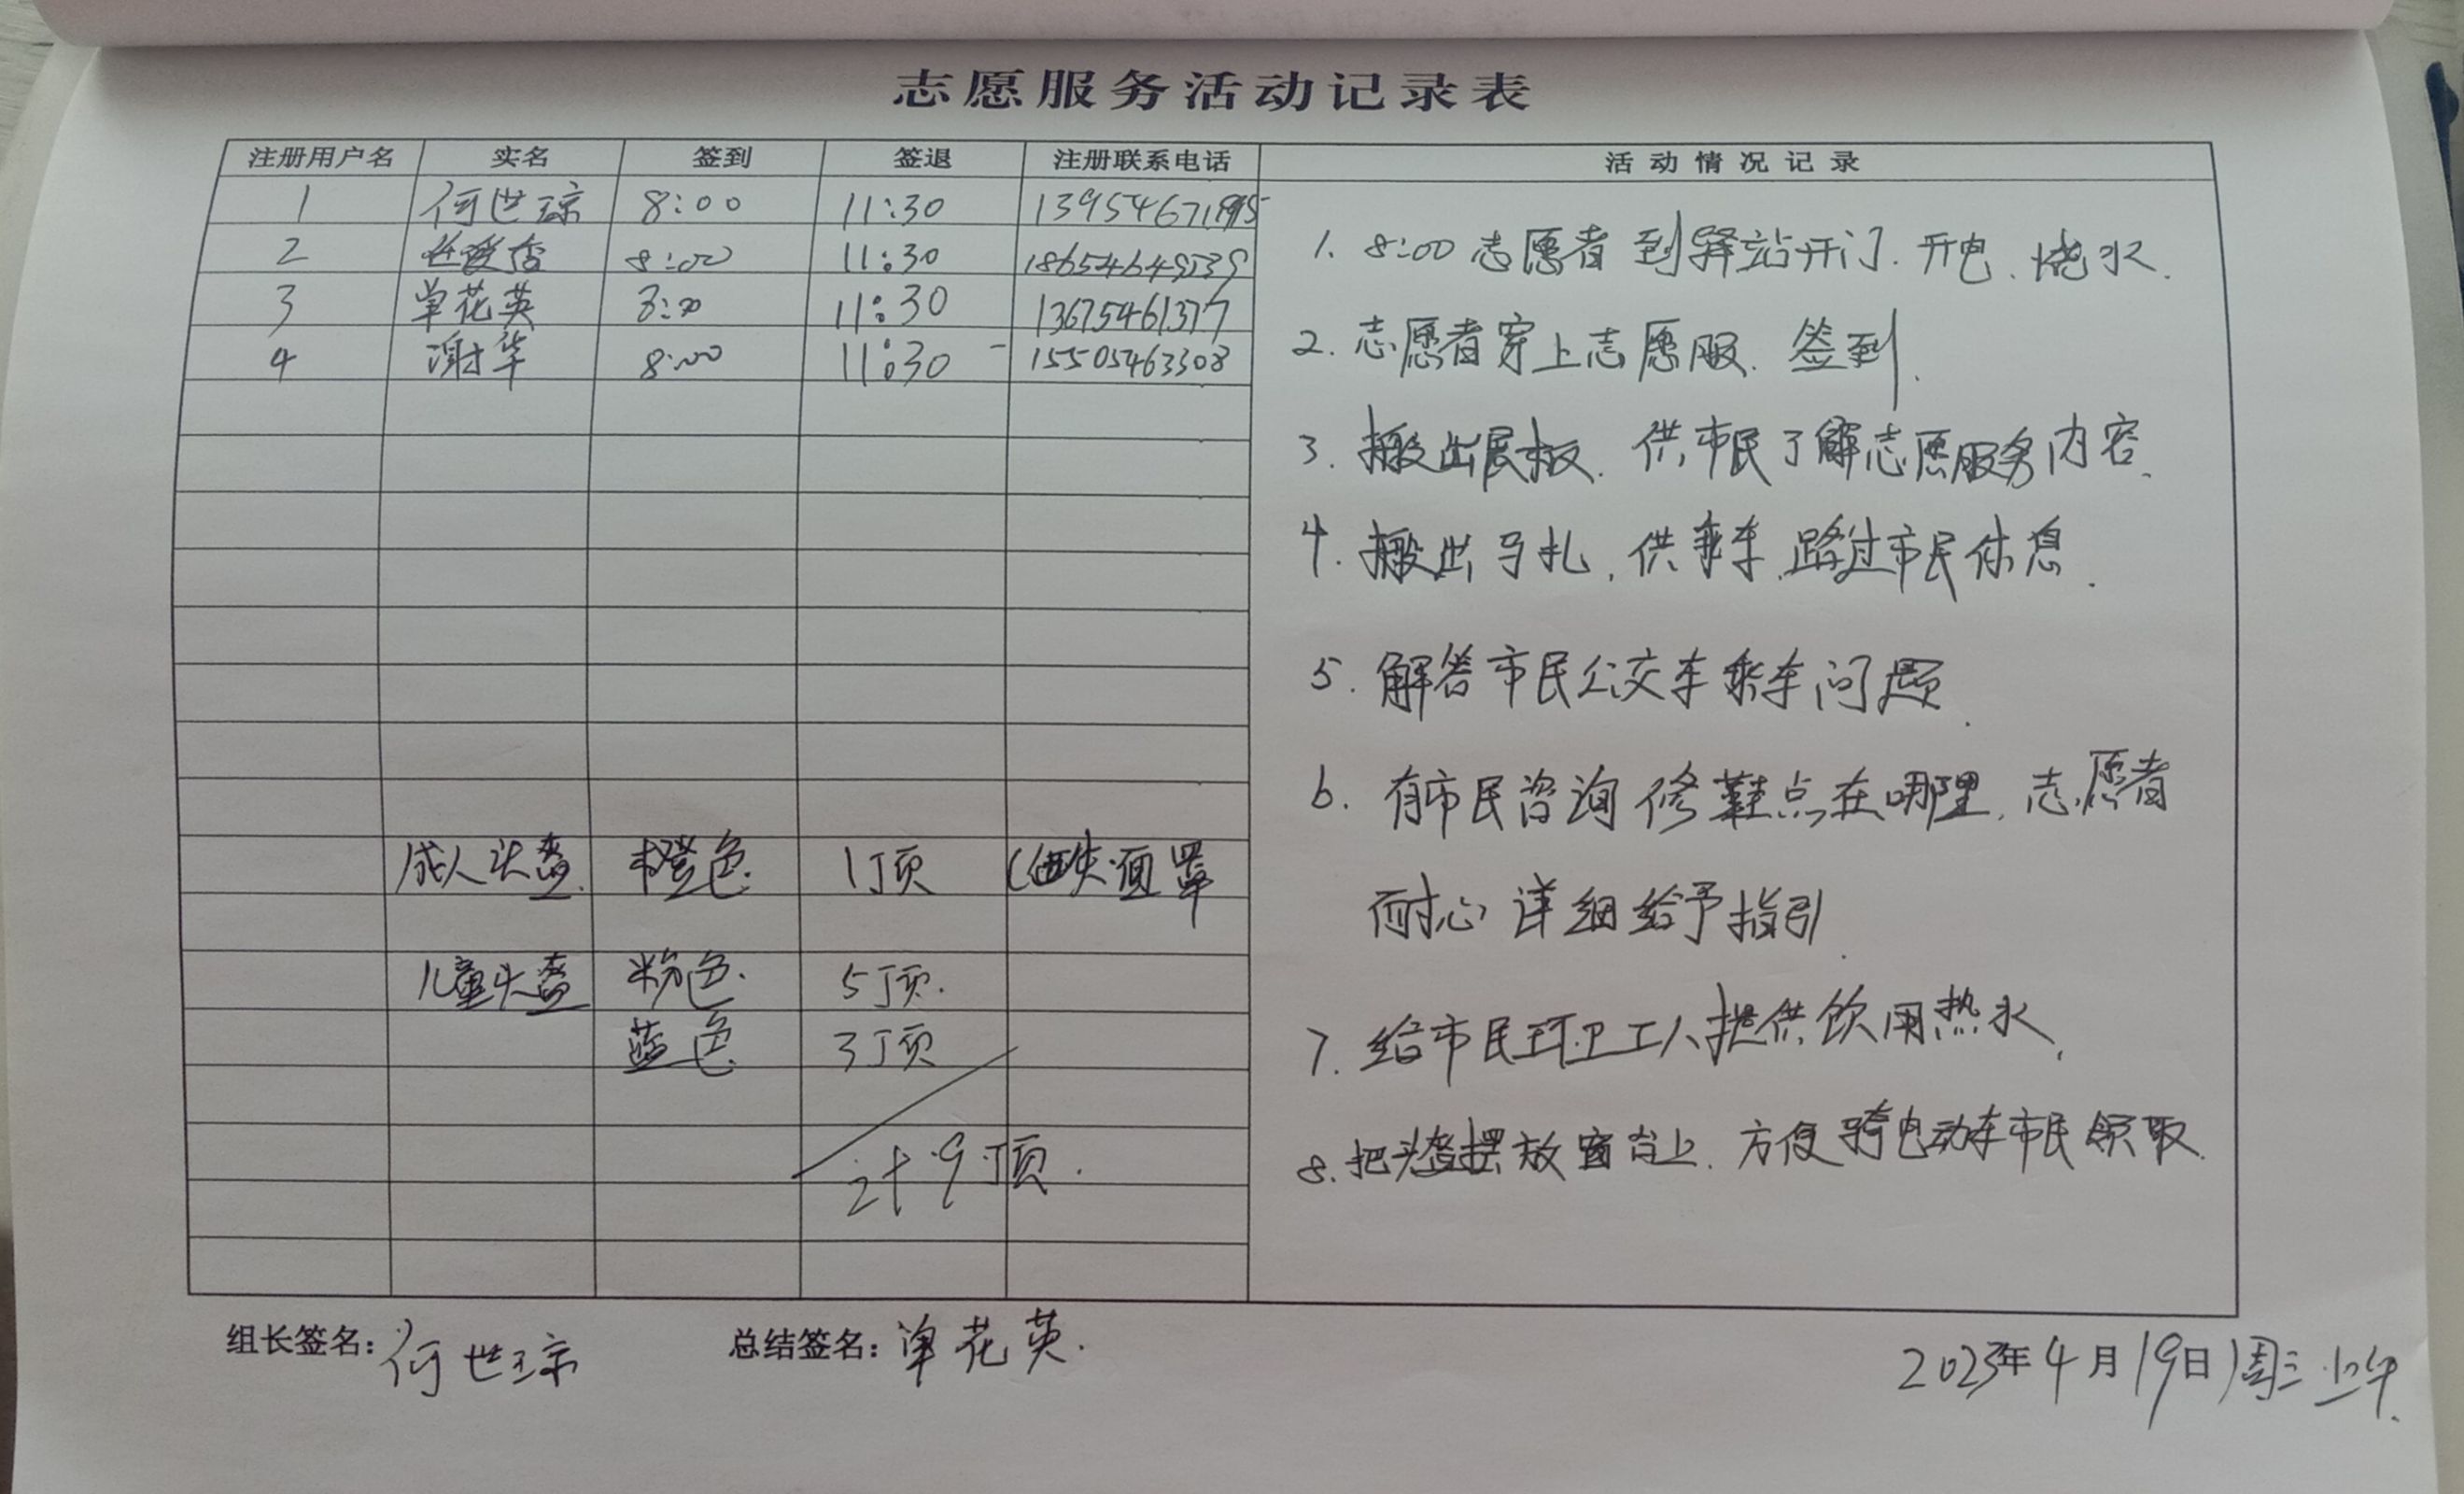 志愿服务活动记录表
注册用户名 实名 签到 签退 注册联系电话 活动情况记录
1 何世琼 8:00 11:30
2 8:00 11:30
3 单花英 8:00 11:30
4 谢华 8:00 11:30 15505463308
成人头盔 橙色 1顶 面罩
儿童头盔 粉色 5顶
蓝色 3顶
计9顶.
1. 8:00 志愿者到驿站开门、开电、烧水.
2. 志愿者穿上志愿服、签到.
3. 搬出展板、供市民了解志愿服务内容.
4. 搬出马扎, 供乘车、路过市民休息.
5. 解答市民公交车乘车问题.
6. 有市民咨询修鞋点在哪里, 志愿者
耐心详细给予指引.
7. 给市民环卫工人提供饮用热水.
8. 把头盔摆放窗台上、方便骑电动车市民领取.
组长签名:何世琼 总结签名:单花英. 2023年4月19日周三上午.